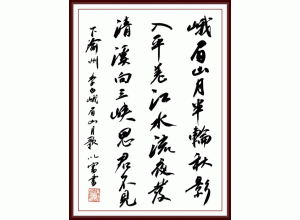 峨眉山月半輪秋影
入平羌江水流夜發
清溪向三峽思君不見
下渝州 李白峨眉山月歌 以 書